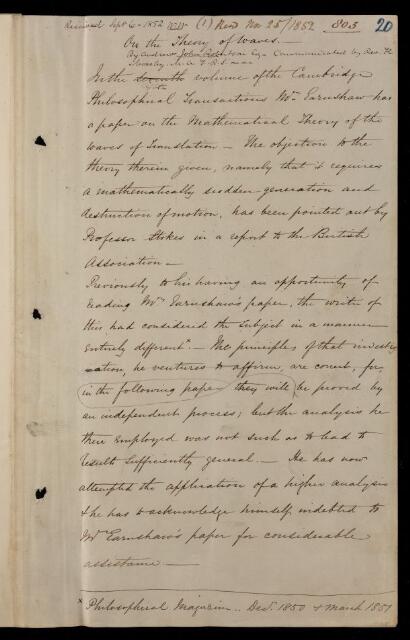 Received Sept 6 - 1852 (1) Read Nov 25/1852 803 20
On the Theory of Waves. —
By Andrew John Robertson Esq - Communicated by Rev. H.
Moseley. M.A F.R.S. ——
In the seventh volume of the Cambridge
Philosophical Transactions Mr. Earnshaw has
a paper on the Mathematical Theory of the
waves of translation — The objection to the
theory therein given, namely that it requires
a mathematically sudden generation and
destruction of motion, has been pointed out by
Professor Stokes in a report to the British
Association —
Previously to his having an opportunity of
reading Mr. Earnshaw's paper, the writer of
this had considered the subject in a manner
entirely different* — The principles of that investig
-ation, he ventures to affirm, are correct, for,
in the following paper they will be proved by
an independent process; but the analysis he
there employed was not such as to lead to
results sufficiently general. — He has now
attempted the application of a higher analysis
& he has to acknowledge himself indebted to
Mr. Earnshaw's paper for considerable
assistance —
* Philosophical Magazine .. Decr. 1850 & March 1851